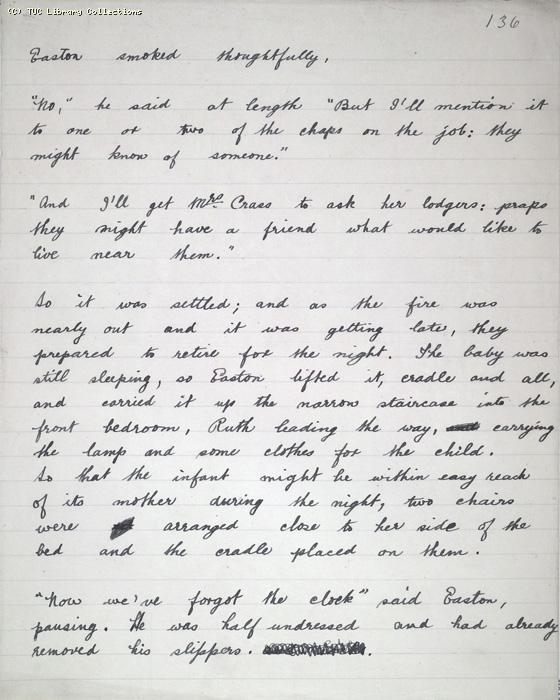 (C) TUC Library Collections
136
Easton smoked thoughtfully,
"No," he said at length "But I'll mention it
to one or two of the chaps on the job: they
might know of someone."
"And I'll get Mrs Crass to ask her lodgers: praps
they might have a friend what would like to
live near them."
So it was settled; and as the fire was
nearly out and it was getting late, they
prepared to retire for the night. The baby was
still sleeping, so Easton lifted it, cradle and all,
and carried it up the narrow staircase into the
front bedroom, Ruth leading the way, carrying
the lamp and some clothes for the child.
So that the infant might be within easy reach
of its mother during the night, two chairs
were arranged close to her side of the
bed and the cradle placed on them.
"Now we've forgot the clock" said Easton,
pausing. He was half undressed and had already
removed his slippers.